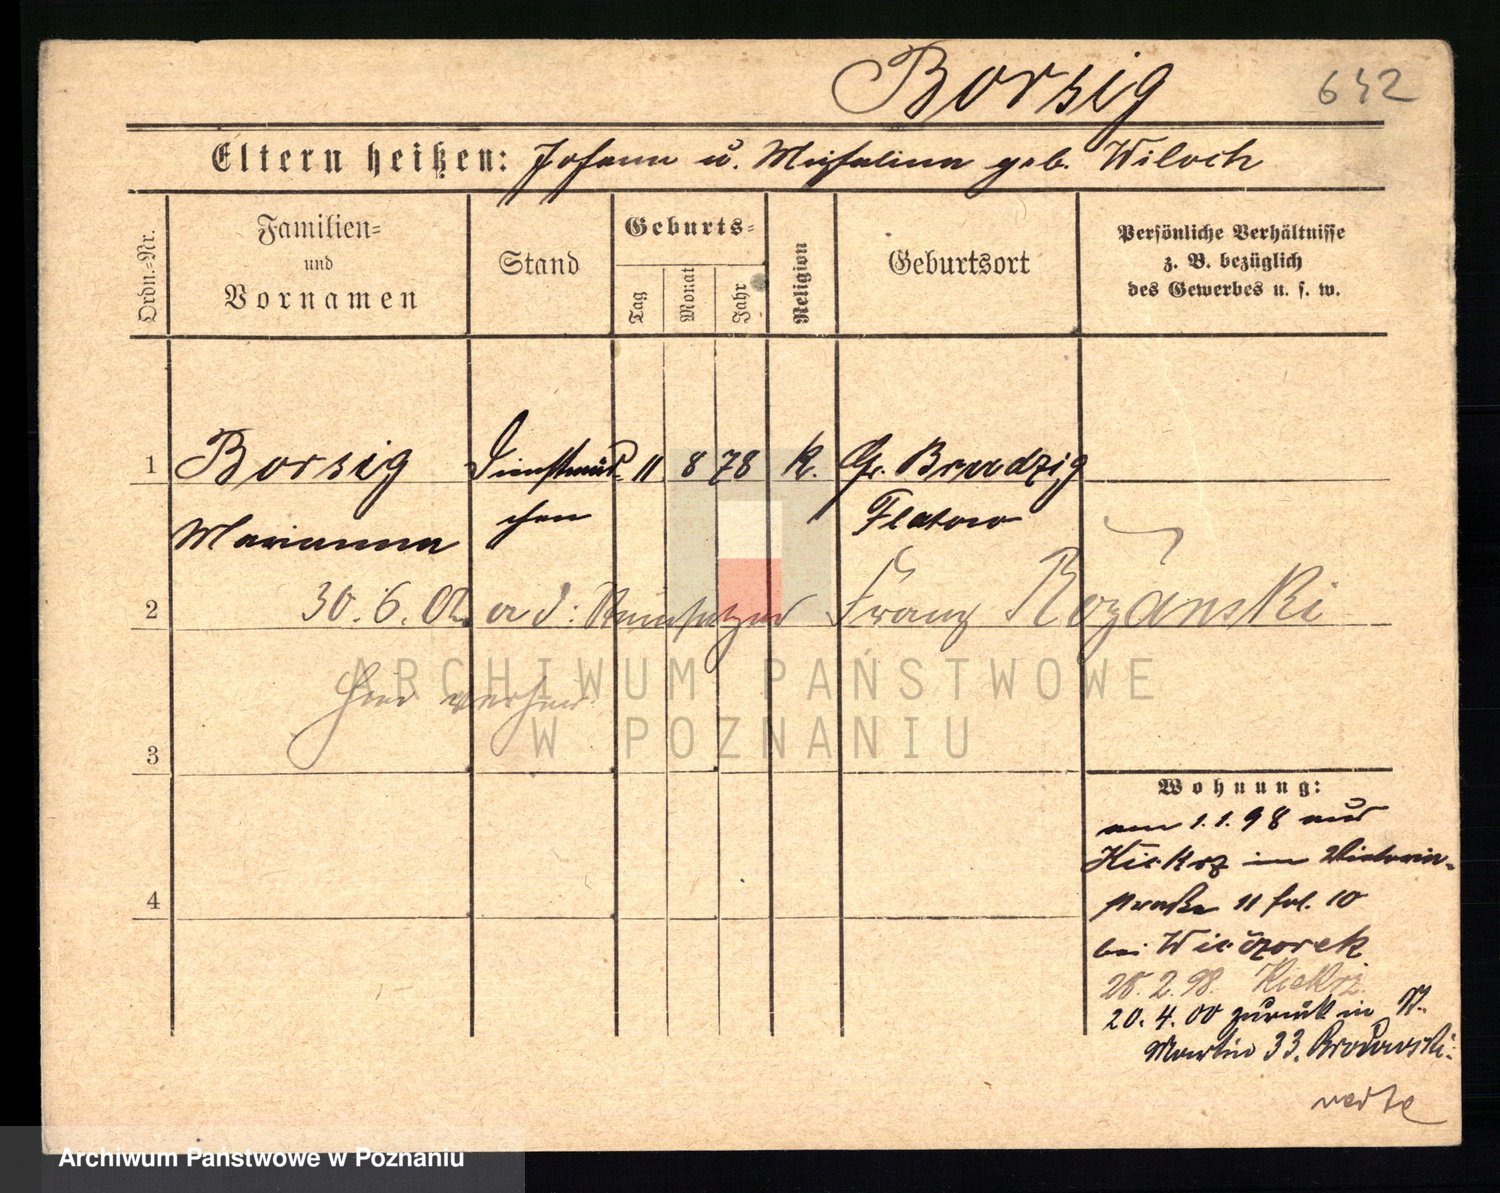 Borsig 642
Eltern heißen: Johann u. Michalina geb. Wiloch
Ordn.-Nr.
Familien-
und
Vornamen
Stand
Geburts-
Tag
Monat
Jahr
Religion
Geburtsort
Persönliche Verhältnisse
z. B. bezüglich
des Gewerbes u. s. w.
1 Borsig Dienstmäd- 11 8 78 K. Gr.
Marianna chen Flatow
2 30.6.02 Franz Rozanski
hier
3
Wohnung:
am 1.1.98 aus
Kiekrz in Victoria-
4 straße 11 fol. 10
bei Wieczorek
28.2.98. Kiekrz.
20.4.00 zurück in St.
Martin 33.
verte
ARCHIWUM PAŃSTWOWE
W POZNANIU
Archiwum Państwowe w Poznaniu